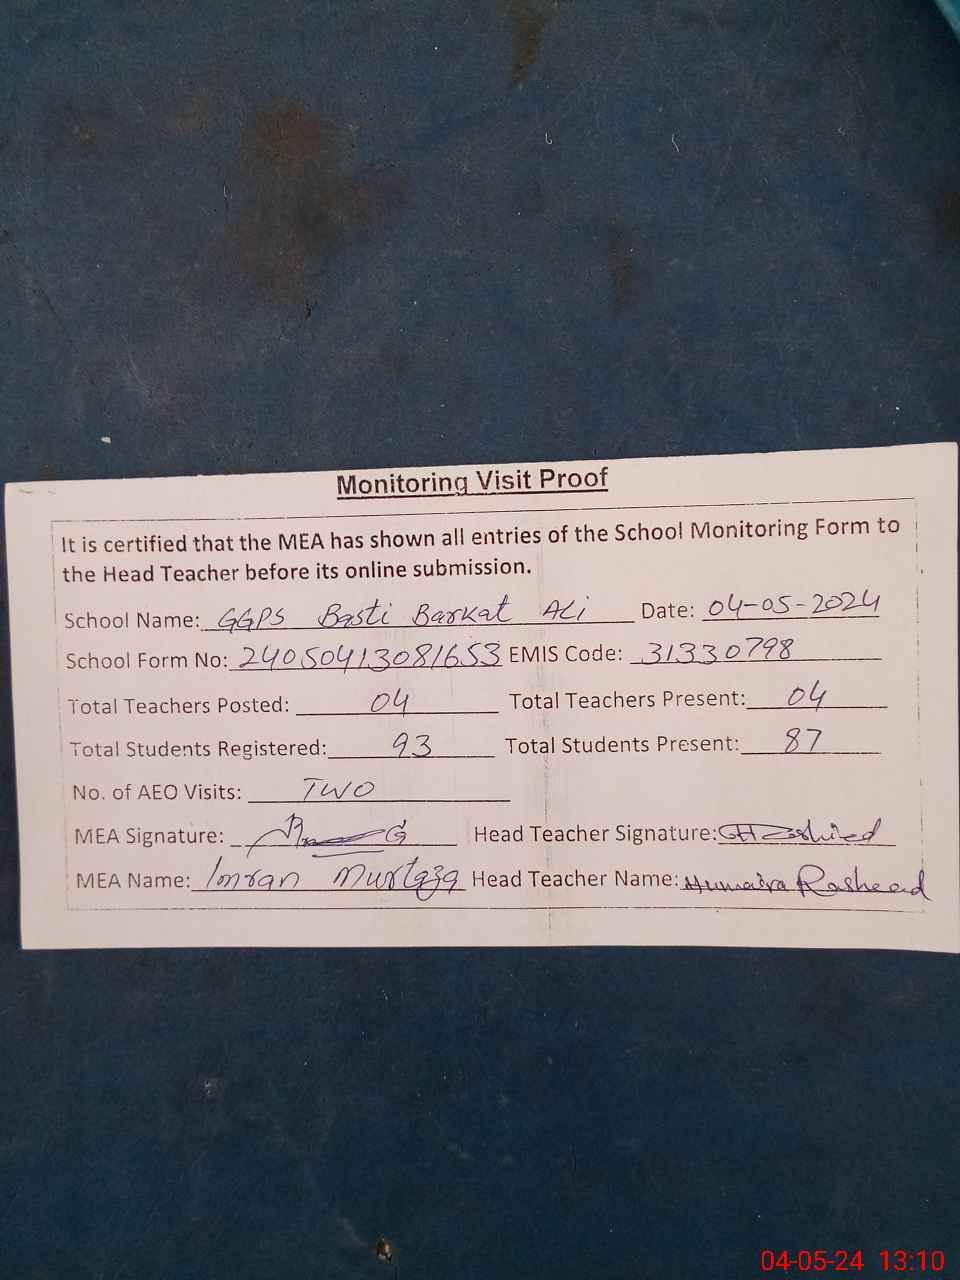 Monitoring Visit Proof
It is certified that the MEA has shown all entries of the School Monitoring Form to
the Head Teacher before its online submission.
School Name: GGPS Basti Barkat Ali Date: 04-05-2024
School Form No: 24050413081653 EMIS Code: 31330798
Total Teachers Posted: 04 Total Teachers Present: 04
Total Students Registered: 93 Total Students Present: 87
No. of AEO Visits: Two
MEA Signature: Head Teacher Signature:
MEA Name: Imran Murtaza Head Teacher Name: Humaira Rasheed
04-05-24 13:10